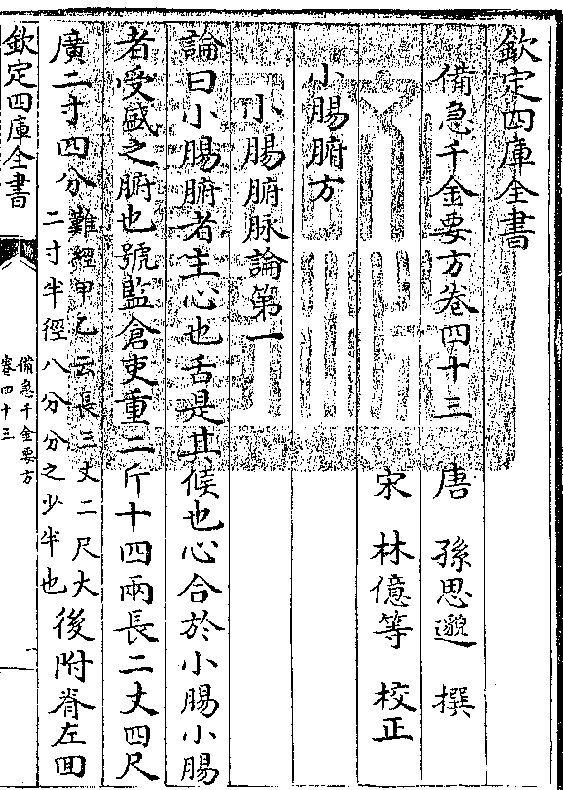 欽定四庫全書
備急千金要方卷四十三
唐 孫思邈 撰
宋 林億等 校正
小腸腑方
小腸腑脉論第一
論曰小腸腑者主心也舌是其候也心合於小腸小腸
者受盛之腑也號監倉吏重二斤十四兩長二丈四尺
廣二寸四分難經甲乙云長三丈二尺大
二寸半徑八分分之少半也後附脊左回
欽定四庫全書
備急千金要方
卷四十三